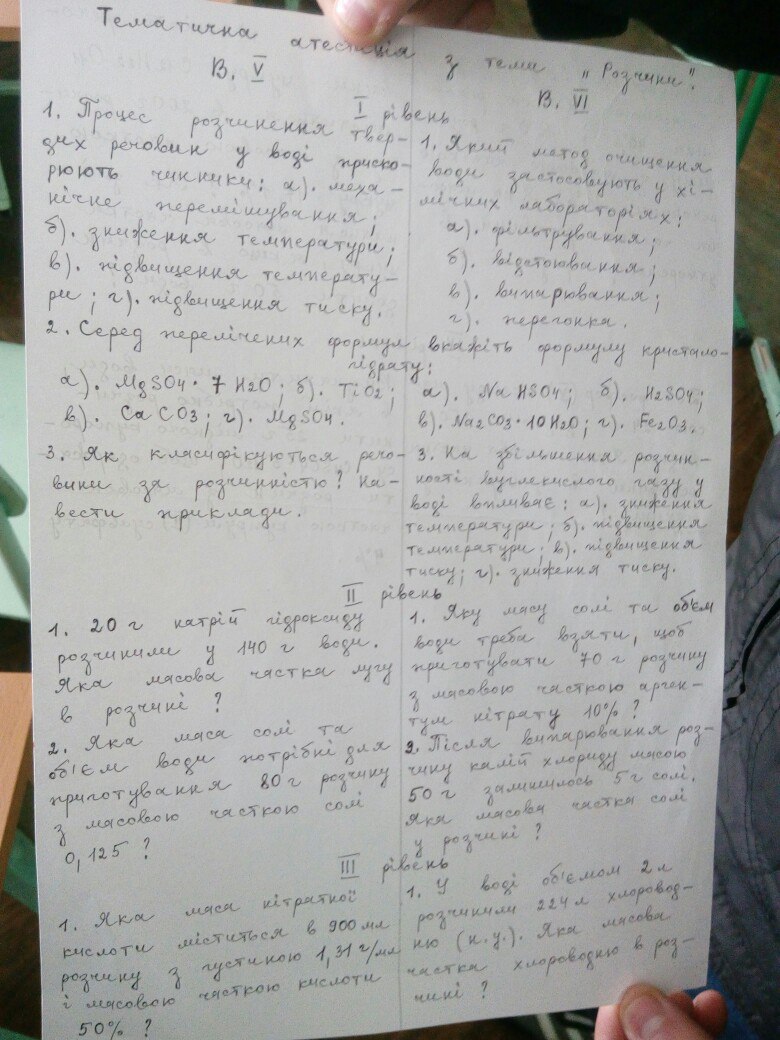 Тематична атестація з теми „Розчини".
В. V
I рівень
1. Процес розчинення твер-
дих речовин у воді приско-
рюють чинники: а). меха-
нічне перемішування;
б). зниження температури;
в). підвищення температу-
ри; г). підвищення тиску.
В. VI
1. Який метод очищення
води застосовують у хі-
мічних лабораторіях:
а). фільтрування;
б). відстоювання;
в). випарювання;
г). перегонка.
2. Серед перелічених формул вкажіть формулу кристало-
гідрату:
а). MgSO4 · 7 H2O; б). TiO2;
в). CaCO3; г). MgSO4.
3. Як класифікуються речо-
вини за розчинністю? На-
вести приклади.
а). NaHSO4; б). H2SO4;
в). Na2CO3 · 10H2O; г). Fe2O3.
3. На збільшення розчин-
ності вуглекислого газу у
воді впливає: а). зниження
температури; б). підвищення
температури; в). підвищення
тиску; г). зниження тиску.
II рівень
1. 20 г натрій гідроксиду
розчинили у 140 г води.
Яка масова частка лугу
в розчині?
2. Яка маса солі та
об'єм води потрібні для
приготування 80 г розчину
з масовою часткою солі
0,125 ?
1. Яку масу солі та об'єм
води треба взяти, щоб
приготувати 70 г розчину
з масовою часткою арген-
тум нітрату 10% ?
2. Після випарювання роз-
чину калій хлориду масою
50 г залишилось 5 г солі.
Яка масова частка солі
у розчині ?
III рівень
1. Яка маса нітратної
кислоти міститься в 900 мл
розчину з густиною 1,31 г/мл
і масовою часткою кислоти
50% ?
1. У воді об'ємом 2 л
розчинили 224 л хлоровод-
ню (н.у.). Яка масова
частка хлороводню в роз-
чині ?